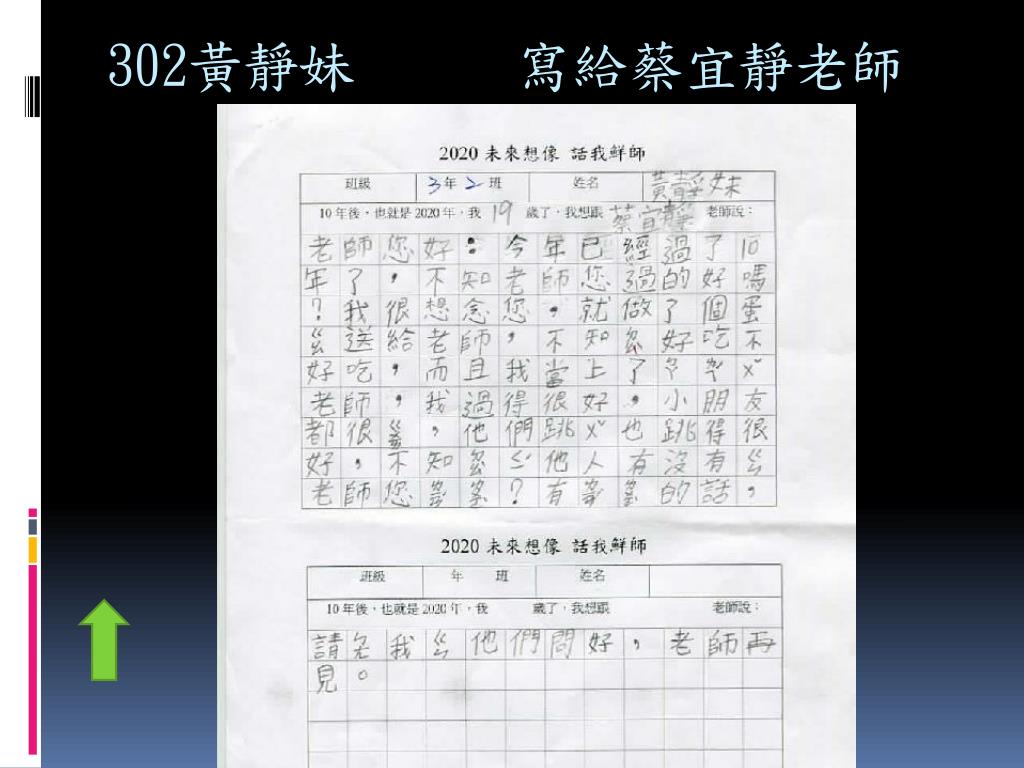 302黃靜妹 寫給蔡宜靜老師
2020 未來想像 話我鮮師
班級 3年2班 姓名 黃靜妹
10年後，也就是2020年，我19歲了，我想跟蔡宜靜老師說：
老師您好：今年已經過了10
年了，不知老師您過的好嗎
？我很想念您，就做了個蛋
ㄍㄠ送給老師，不知ㄉㄠ好吃不
好吃，而且我當上了
老師，我過得很好，小朋友
都很，他們跳ㄨˇ也跳得很
好，不知 他人有沒有ㄍㄣ
老師您？有的話，
請 我ㄍㄣ他們問好，老師再
見。
2020 未來想像 話我鮮師
班級 年 班 姓名
10年後，也就是2020年，我 歲了，我想跟 老師說：